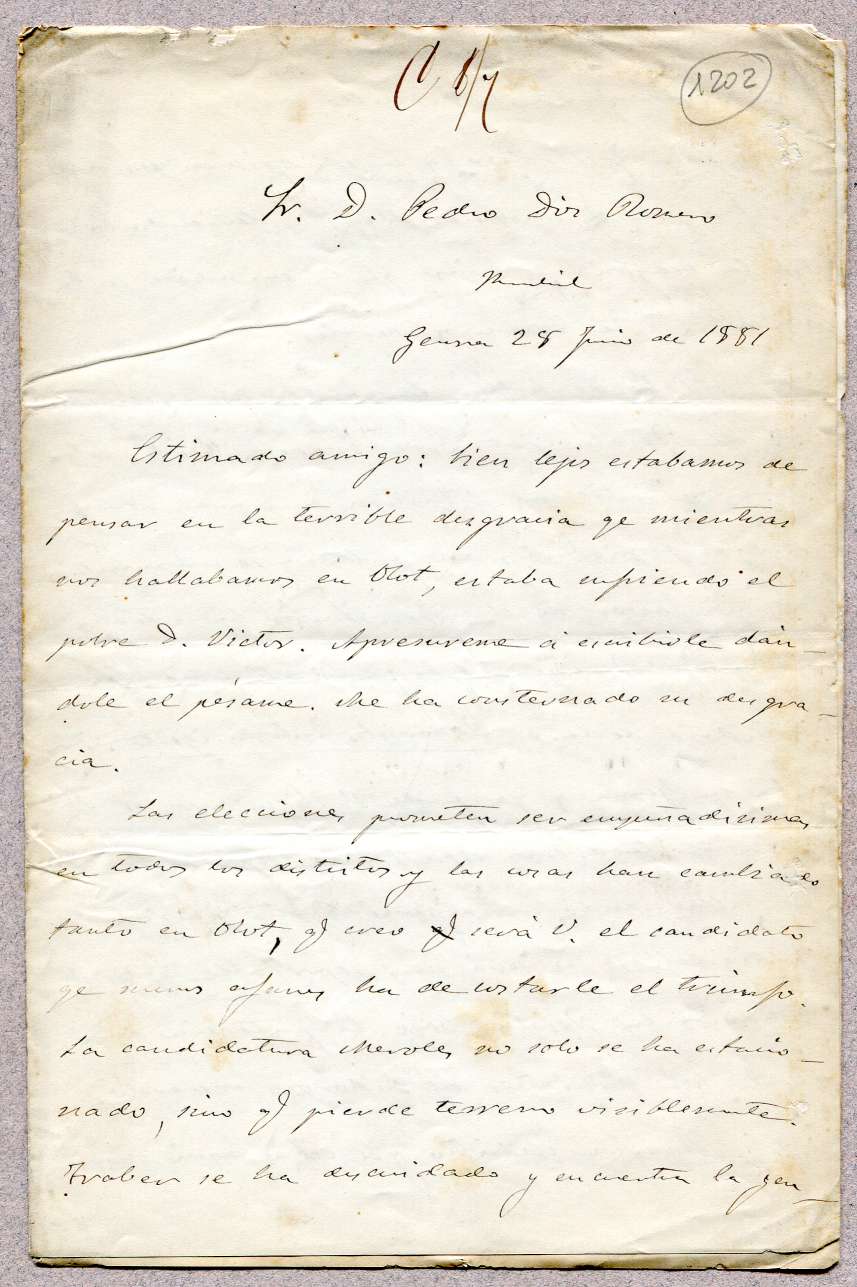 C 8/7
1202
Sr. D. Pedro Dioz Romero
Madrid
Gerona 28 Junio de 1881
Estimado amigo: bien lejos estabamos de
pensar en la terrible desgracia qe mientras
nos hallabamos en Olot, estaba sufriendo el
pobre D. Victor. Apresureme á escribirle dán-
dole el pésame. Me ha consternado su desgra-
cia.
Las elecciones prometen ser empeñadisimas
en todos los distritos y las cosas han cambiado
tanto en Olot, q creo será V. el candidato
qe menos afanes ha de costarle el triunfo.
La candidatura Meroles no solo se ha estacio-
nado, sino q pierde terreno visiblemente.
Fraber se ha descuidado y encuentra la gen-